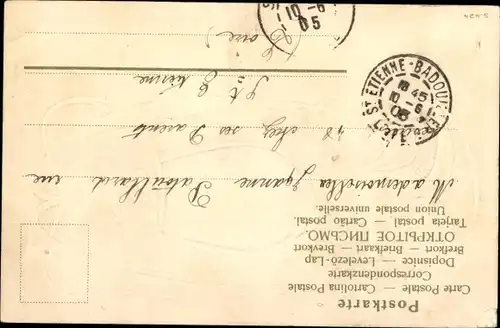 Postkarte
Carte Postale — Cartolina Postale
Correspondenzkarte
Dopisnice — Levelező-Lap
Brefkort — Briefkaart — Brevkort
ОТКРЫТОЕ ПИСЬМО.
Tarjeta postal — Cartão postal.
Union postale universelle.
Mademoiselle Jeanne
rue
48 chez ses Parents
St Etienne
(Loire)
ST ETIENNE-BADOUILLERE
10 45
10-6
05
10-6
05